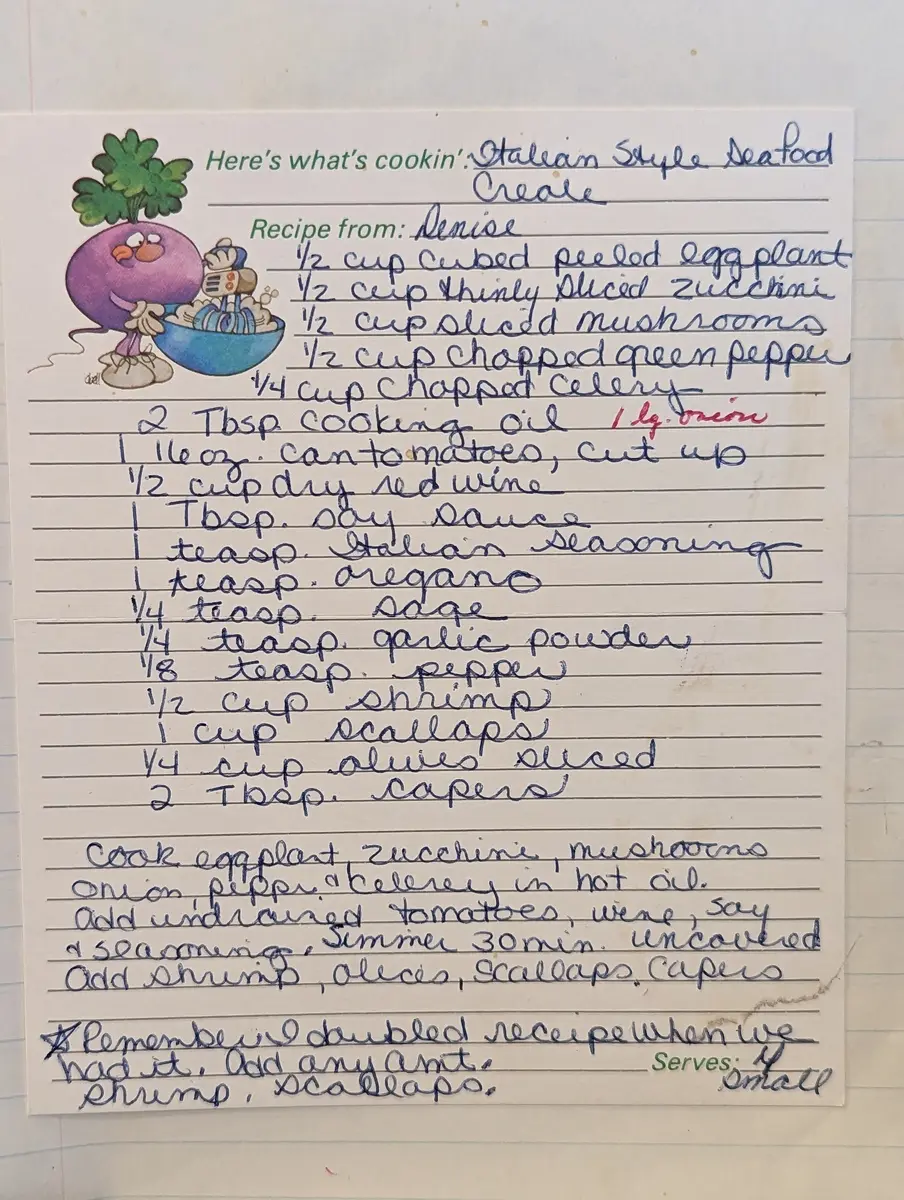 Here's what's cookin': Italian Style Seafood
Creole
Recipe from: Denise
1/2 cup cubed peeled eggplant
1/2 cup thinly sliced zucchini
1/2 cup sliced mushrooms
1/2 cup chopped green pepper
1/4 cup chopped celery
2 Tbsp cooking oil 1 lg. onion
1 16 oz. can tomatoes, cut up
1/2 cup dry red wine
1 Tbsp. soy sauce
1 teasp. Italian Seasoning
1 teasp. oregano
1/4 teasp. sage
1/4 teasp. garlic powder
1/8 teasp. pepper
1/2 cup shrimp
1 cup scallops
1/4 cup olives sliced
2 Tbsp. capers
Cook eggplant, zucchini, mushooms
onion, pepper & celerey in hot oil.
Add undrained tomatoes, wine, soy
& seasoning. Simmer 30 min. uncovered
Add shrimp, olices, scallops, capers
* Remember we doubled receipe when we
had it. Add any amt.
Serves: 4
shrimp, scallops.
small